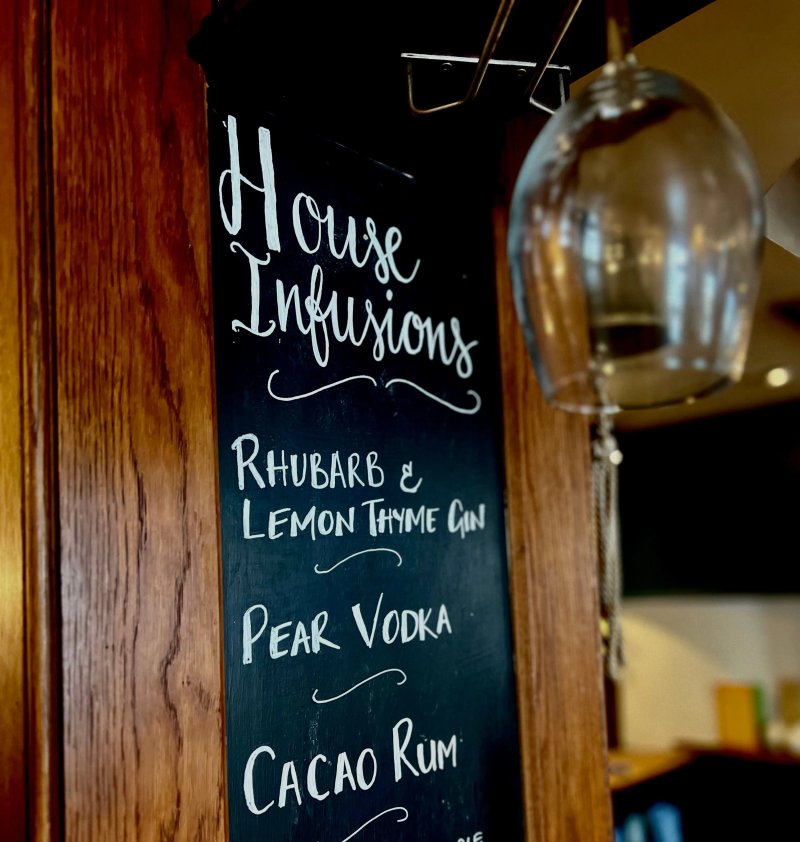 House
Infusions
RHUBARB &
LEMON THYME GIN
PEAR VODKA
CACAO RUM